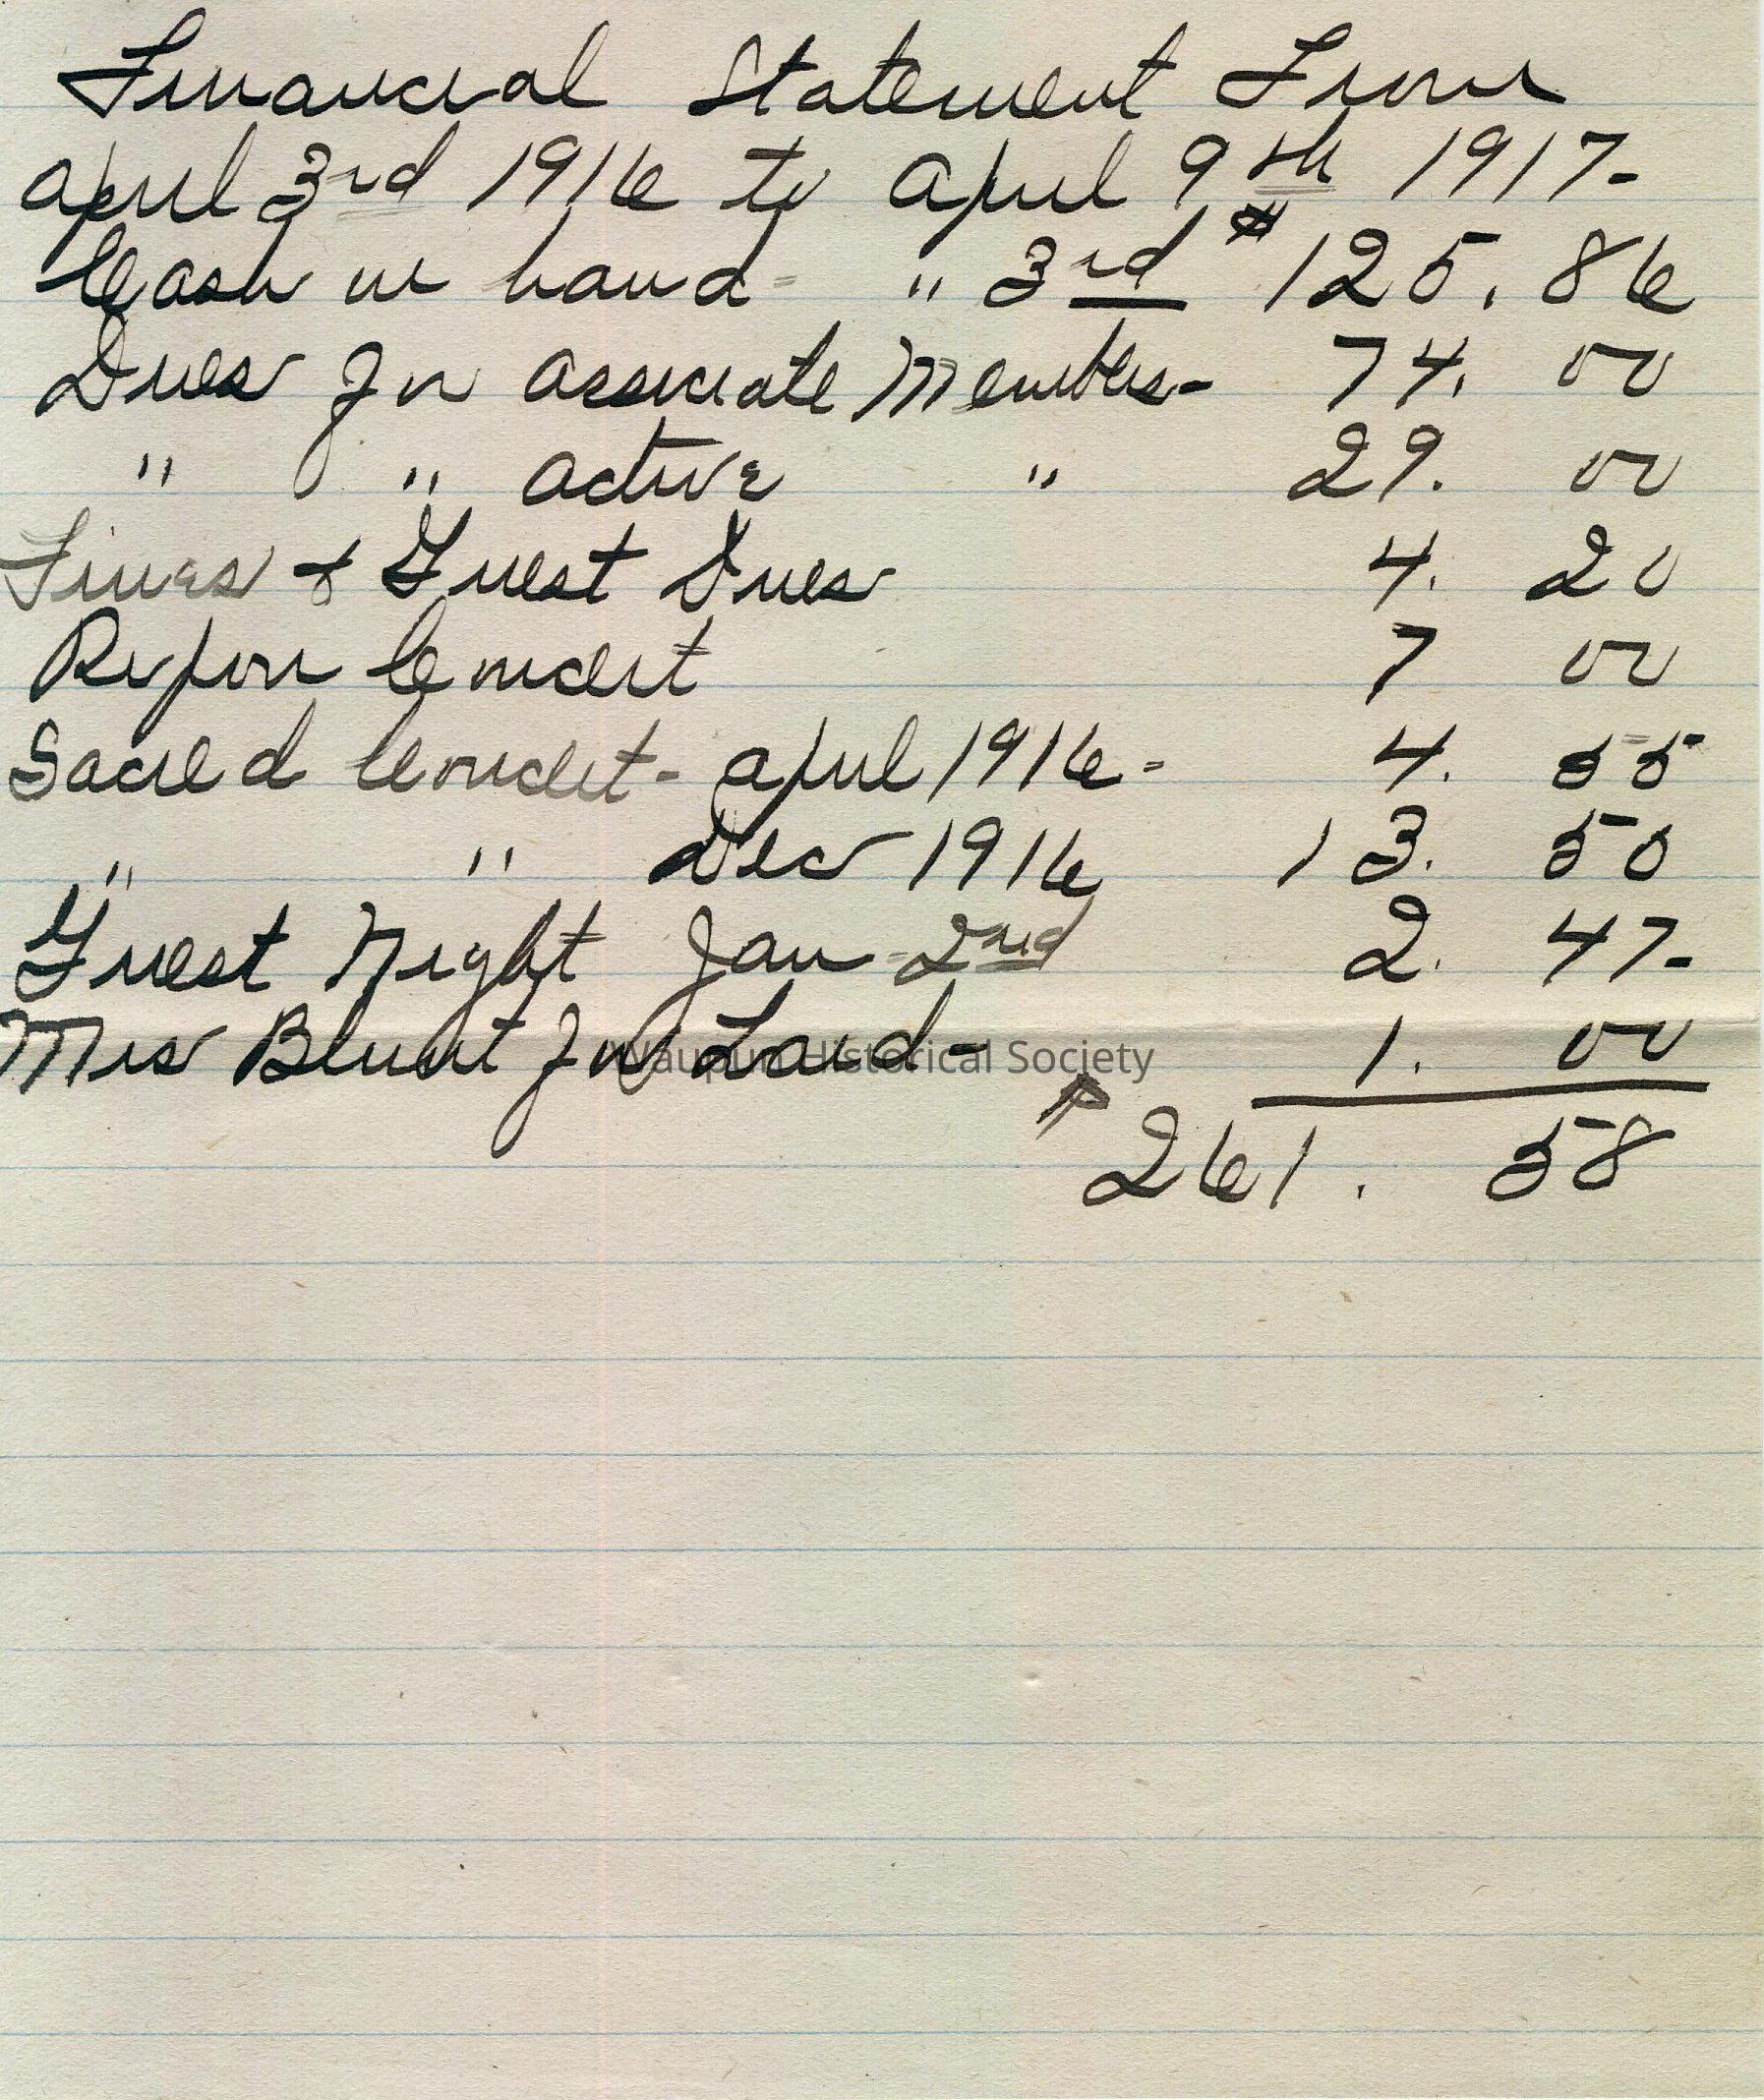 Financial Statement From
April 3rd 1916 to April 9th 1917-
Cash in hand - " 3rd $125.86
Dues for associate Members- 74. 00
" " active " 29. 00
Fines & Guest Dues 4. 20
Ripon Concert 7 00
Sacred Concert - April 1916 - 4. 55
" " Dec 1916 13. 50
Guest Night Jan 2nd 2. 47-
Mrs Blunt for Laid- 1. 00
Waupun Historical Society
$ 261. 58